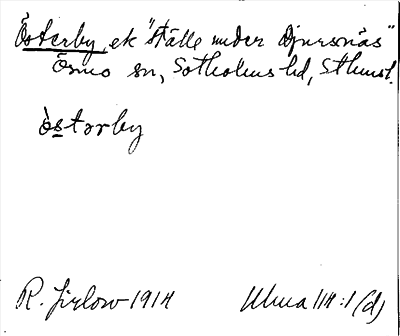 Österby, ek "ställe under Djursnäs"
Ösmo sn, Sotholms hd, Sthmsl.
òstərby
R. Jirlow 1914 Uluna 114:1 (d)